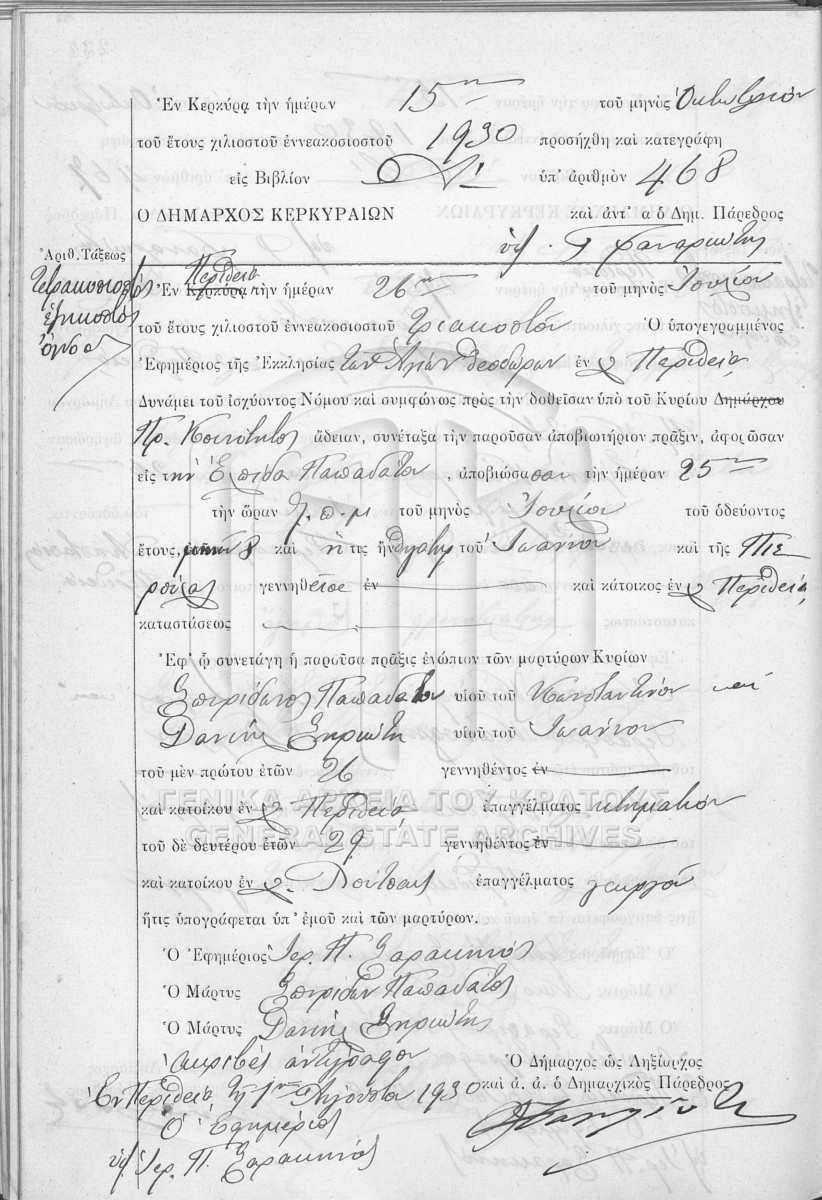 Ἐν Κερκύρᾳ τὴν ἡμέραν 15ην τοῦ μηνὸς Ὀκτωβρίου
τοῦ ἔτους χιλιοστοῦ ἐννεακοσιοστοῦ 1930 προσήχθη καὶ κατεγράφη
εἰς Βιβλίον ὑπ' ἀριθμὸν 468
Ο ΔΗΜΑΡΧΟΣ ΚΕΡΚΥΡΑΙΩΝ καὶ ἀντ' α ὁ Δημ. Πάρεδρος
Ἀριθ. Τάξεως
Τετρακοσιοστὸς
ἑξηκοστὸς
ὄγδοος
Περίθεια
Ἐν Κερκύρᾳ τὴν ἡμέραν 26ην τοῦ μηνὸς Ἰουλίου
τοῦ ἔτους χιλιοστοῦ ἐννεακοσιοστοῦ τριακοστοῦ Ὁ ὑπογεγραμμένος
Ἐφημέριος τῆς Ἐκκλησίας τῶν Ἁγίων Θεοδώρων ἐν Περίθεια
Δυνάμει τοῦ ἰσχύοντος Νόμου καὶ συμφώνως πρὸς τὴν δοθεῖσαν ὑπὸ τοῦ Κυρίου Δημάρχου
Πρ. Κοινότητος ἄδειαν, συνέταξα τὴν παροῦσαν ἀποβιωτήριον πρᾶξιν, ἀφορῶσαν
εἰς τὴν Ἐλπίδα Παπαδάτου, ἀποβιώσασαν τὴν ἡμέραν 25ην
τὴν ὥραν π.μ τοῦ μηνὸς Ἰουλίου τοῦ ὁδεύοντος
ἔτους, 8 καὶ ἥτις ἦν θυγάτηρ τοῦ Ἰωάννου καὶ τῆς Πιε
ρούλας γεννηθεῖσα ἐν καὶ κάτοικος ἐν Περίθεια
καταστάσεως
Ἐφ' ᾧ συνετάγη ἡ παροῦσα πρᾶξις ἐνώπιον τῶν μαρτύρων Κυρίων
Σπυρίδωνος Παπαδάτου υἱοῦ τοῦ Κωνσταντίνου καὶ
Δανιὴλ υἱοῦ τοῦ Ἰωάννου
τοῦ μὲν πρώτου ἐτῶν 26 γεννηθέντος ἐν
καὶ κατοίκου ἐν Περίθεια ἐπαγγέλματος κτηματίου
ΓΕΝΙΚΑ ΑΡΧΕΙΑ ΤΟΥ ΚΡΑΤΟΥΣ
GENERAL STATE ARCHIVES
τοῦ δὲ δευτέρου ἐτῶν 29 γεννηθέντος ἐν
καὶ κατοίκου ἐν ἐπαγγέλματος γεωργοῦ
ἥτις ὑπογράφεται ὑπ' ἐμοῦ καὶ τῶν μαρτύρων.
Ὁ Ἐφημέριος Ἱερ. Π. Σαρακηνὸς
Ὁ Μάρτυς Σπυρίδων Παπαδάτος
Ὁ Μάρτυς Δανιὴλ
Ἀκριβὲς ἀντίγραφον Ὁ Δήμαρχος ὡς Ληξίαρχος
Ἐν Περίθεια τῇ 1ην Αὐγούστου 1930 καὶ ἀ. ἀ. ὁ Δημαρχικὸς Πάρεδρος
Ὁ Ἐφημέριος
ὑπ. Ἱερ. Π. Σαρακηνὸς